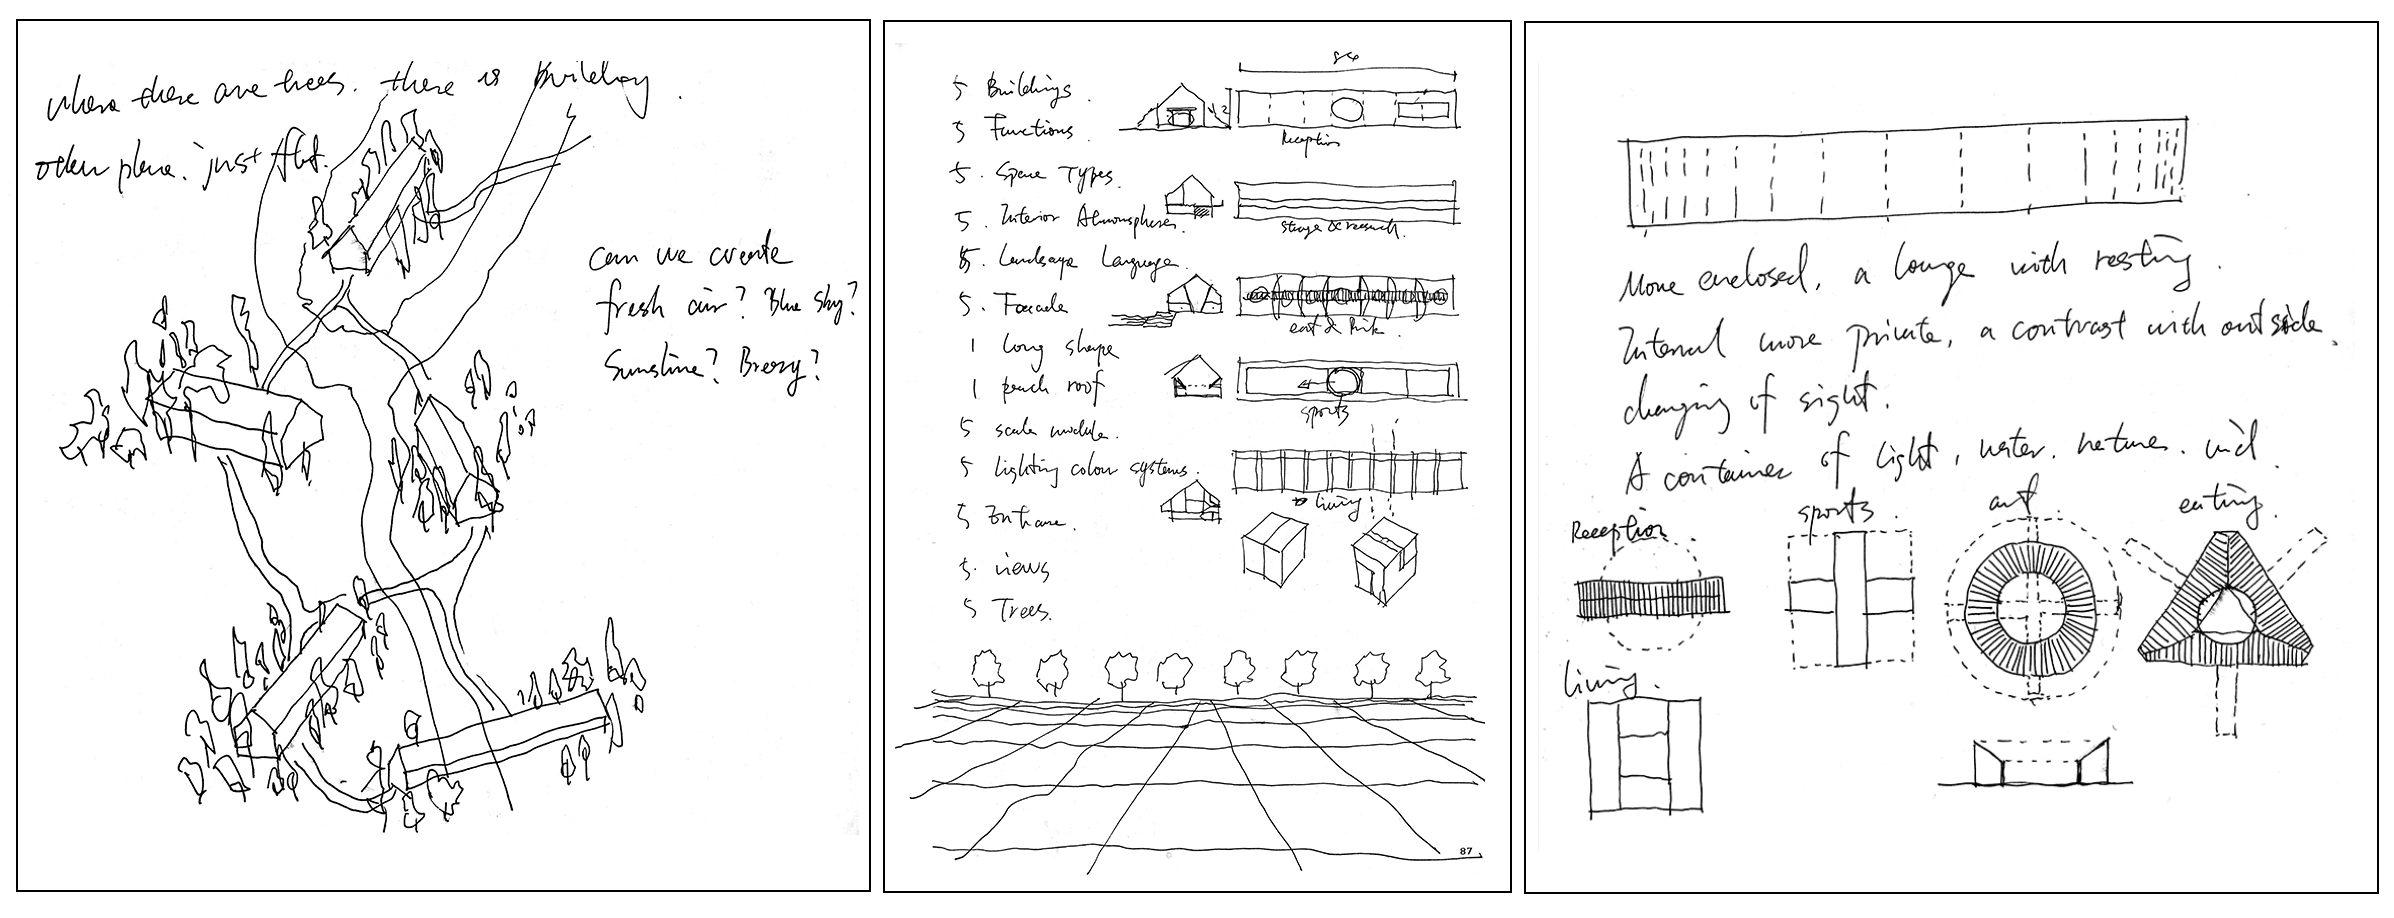 where there are trees. there is building.
other place. just flat.
can we create
fresh air? Blue sky?
Sunshine? Breezy?
5 Buildings.
5 Functions.
5. Space Types.
5. Interior Atmospheres.
5. Landscape Language.
5. Facade
1 long shape
1 roof
5 scale module.
5 lighting colour systems.
5 Entrance.
5. views
5 Trees.
84
Reception
& research.
eat & drink.
sports
living
87
More enclosed, a lounge with resting.
Internal more private, a contrast with outside.
changing of sight.
A container of light, water, nature, wind.
Reception
sports.
art
eating.
living.